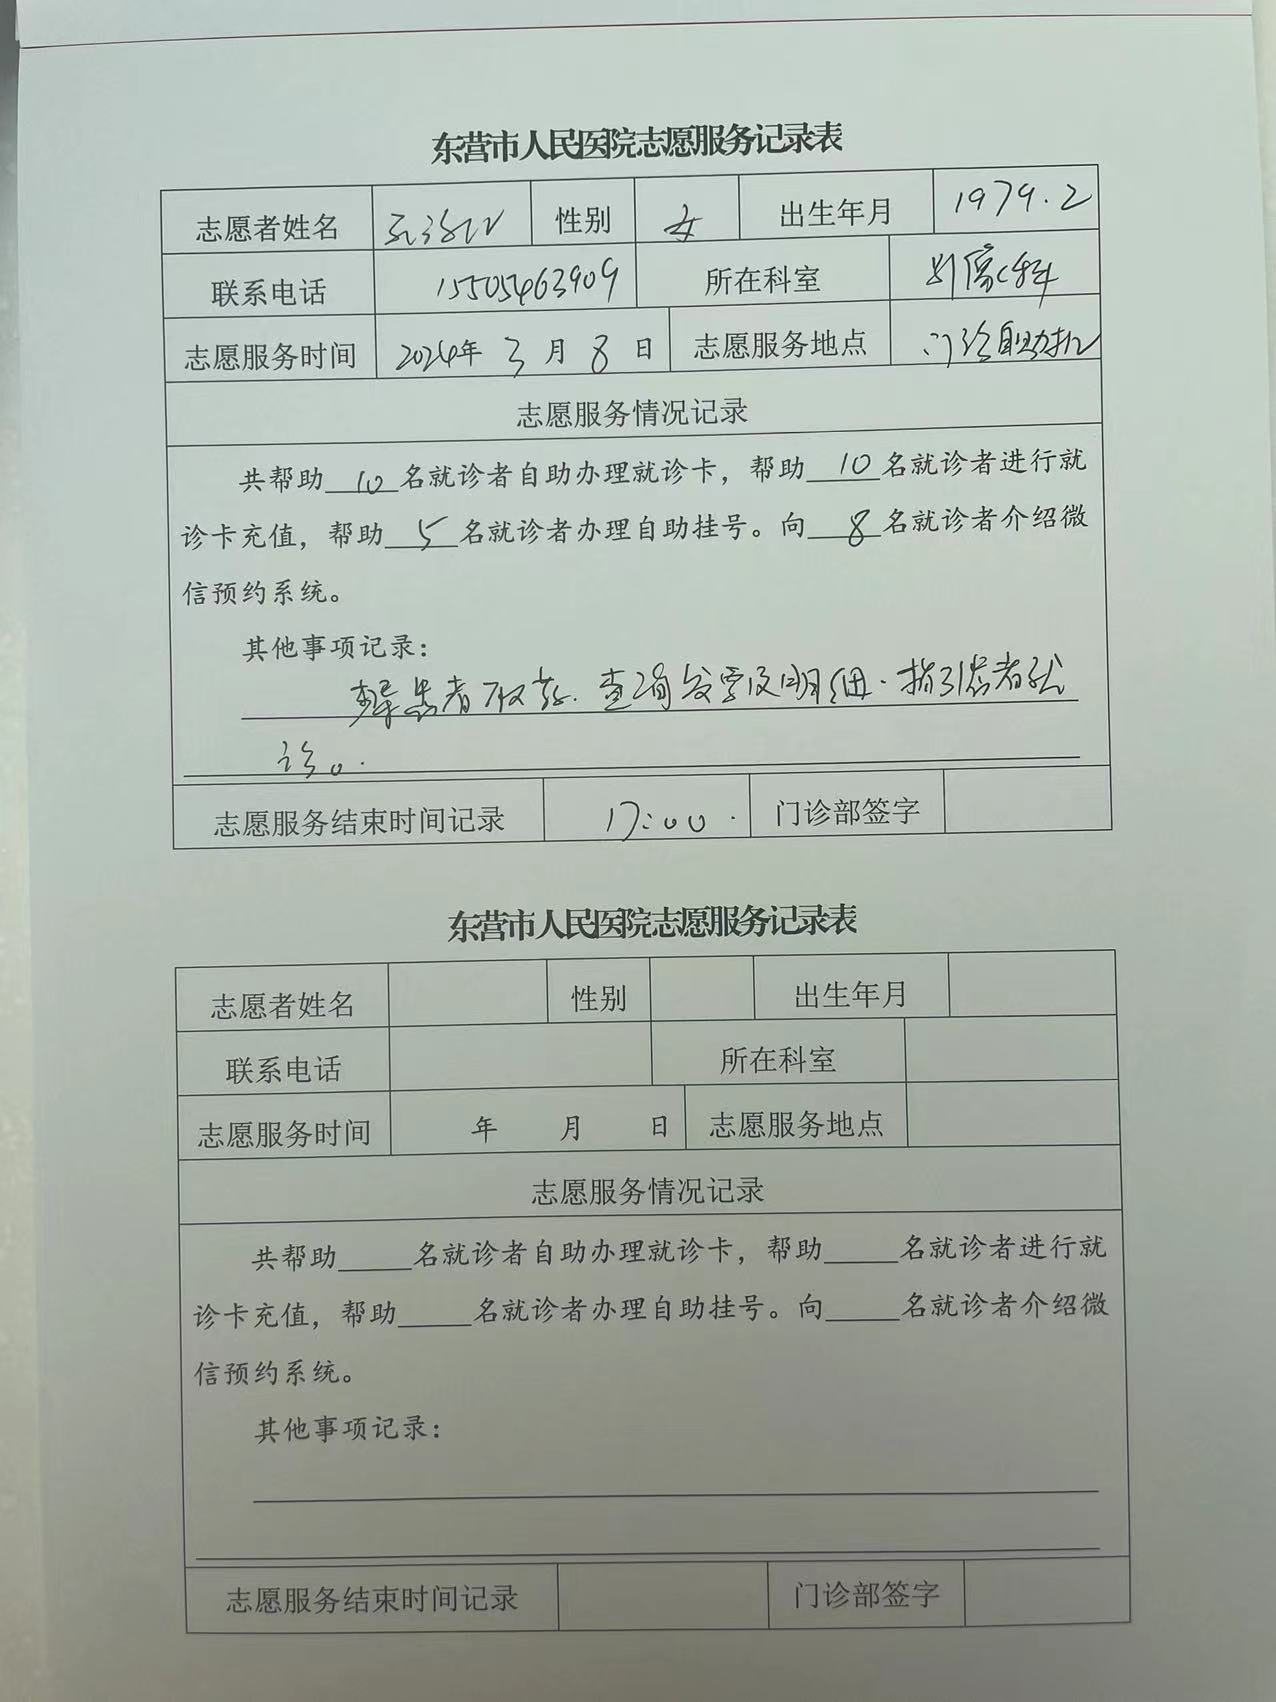 东营市人民医院志愿服务记录表
志愿者姓名 性别 女 出生年月 1979.2
联系电话 15505463909 所在科室 影像科
志愿服务时间 2024年 3 月 8 日 志愿服务地点 门诊自助机
志愿服务情况记录
共帮助 10 名就诊者自助办理就诊卡，帮助 10 名就诊者进行就
诊卡充值，帮助 5 名就诊者办理自助挂号。向 8 名就诊者介绍微
信预约系统。
其他事项记录：
患者取药. 查询发票及明细. 指引患者就
诊。.
志愿服务结束时间记录 17:00. 门诊部签字
东营市人民医院志愿服务记录表
志愿者姓名 性别 出生年月
联系电话 所在科室
志愿服务时间 年 月 日 志愿服务地点
志愿服务情况记录
共帮助_____名就诊者自助办理就诊卡，帮助_____名就诊者进行就
诊卡充值，帮助_____名就诊者办理自助挂号。向_____名就诊者介绍微
信预约系统。
其他事项记录：
志愿服务结束时间记录 门诊部签字